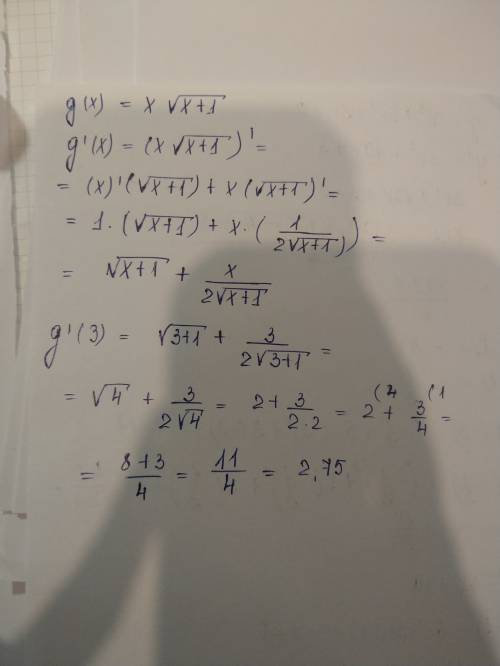 g(x) = x √(x+1)
g'(x) = (x √(x+1))' =
= (x)'(√(x+1)) + x (√(x+1))' =
= 1·(√(x+1)) + x·(1/(2√(x+1))) =
= √(x+1) + x/(2√(x+1))
g'(3) = √(3+1) + 3/(2√(3+1)) =
= √4 + 3/(2√4) = 2 + 3/(2·2) = 2 (4 + 3/4 (1 =
= (8+3)/4 = 11/4 = 2,75